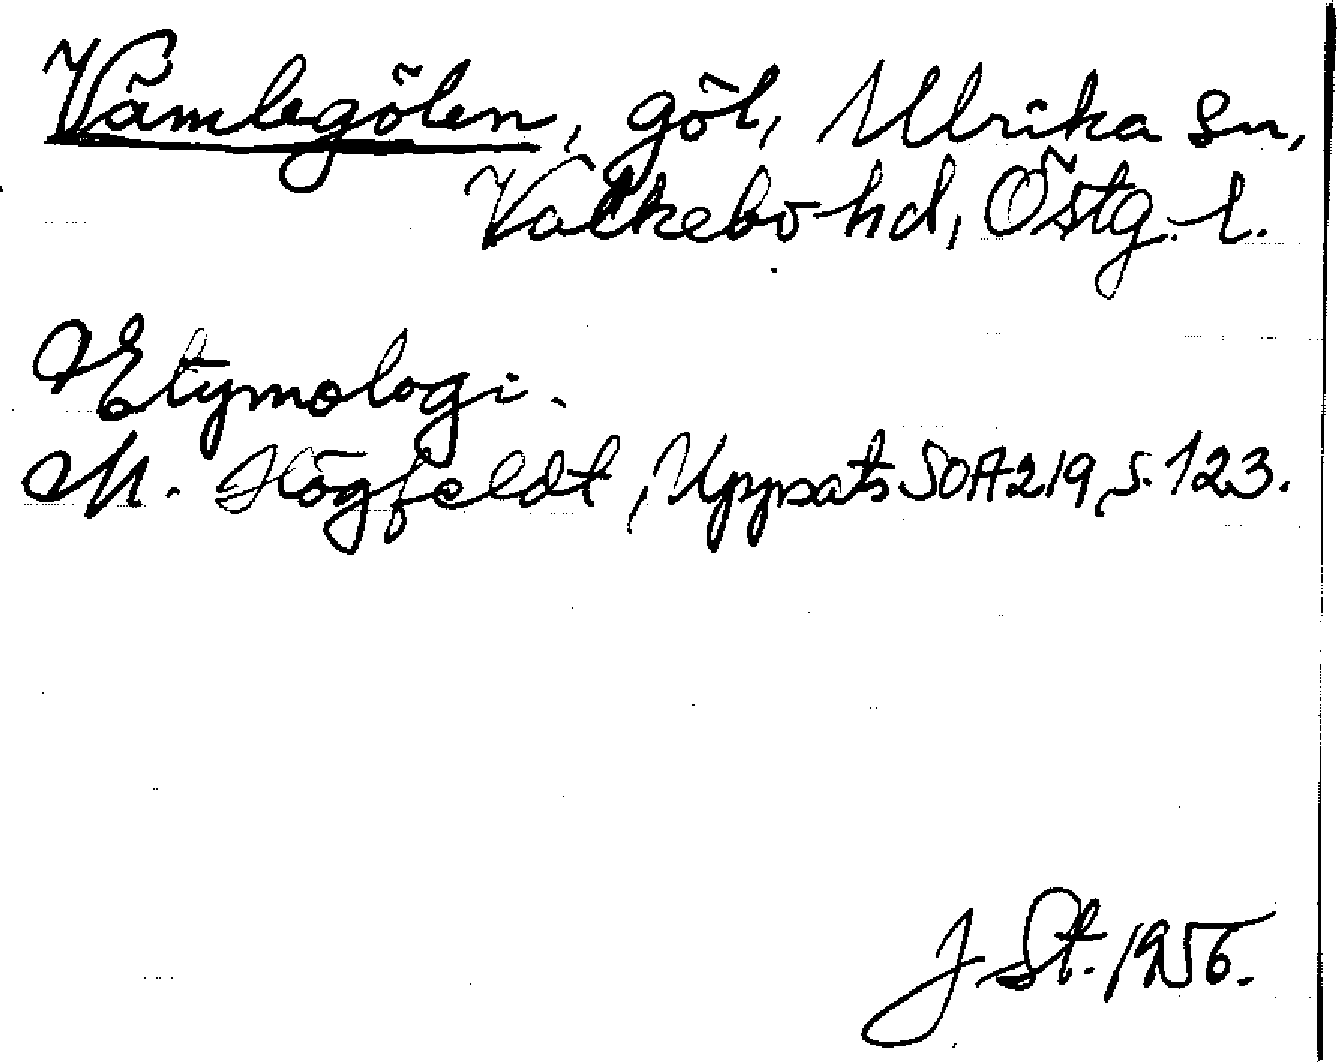 Vämlegölen, göl, Ulrika sn,
Valkebo hd, Östg. l.
Etymologi.
M. Högfeldt, Uppsats SOA 219, s. 123.
J. St. 1956.